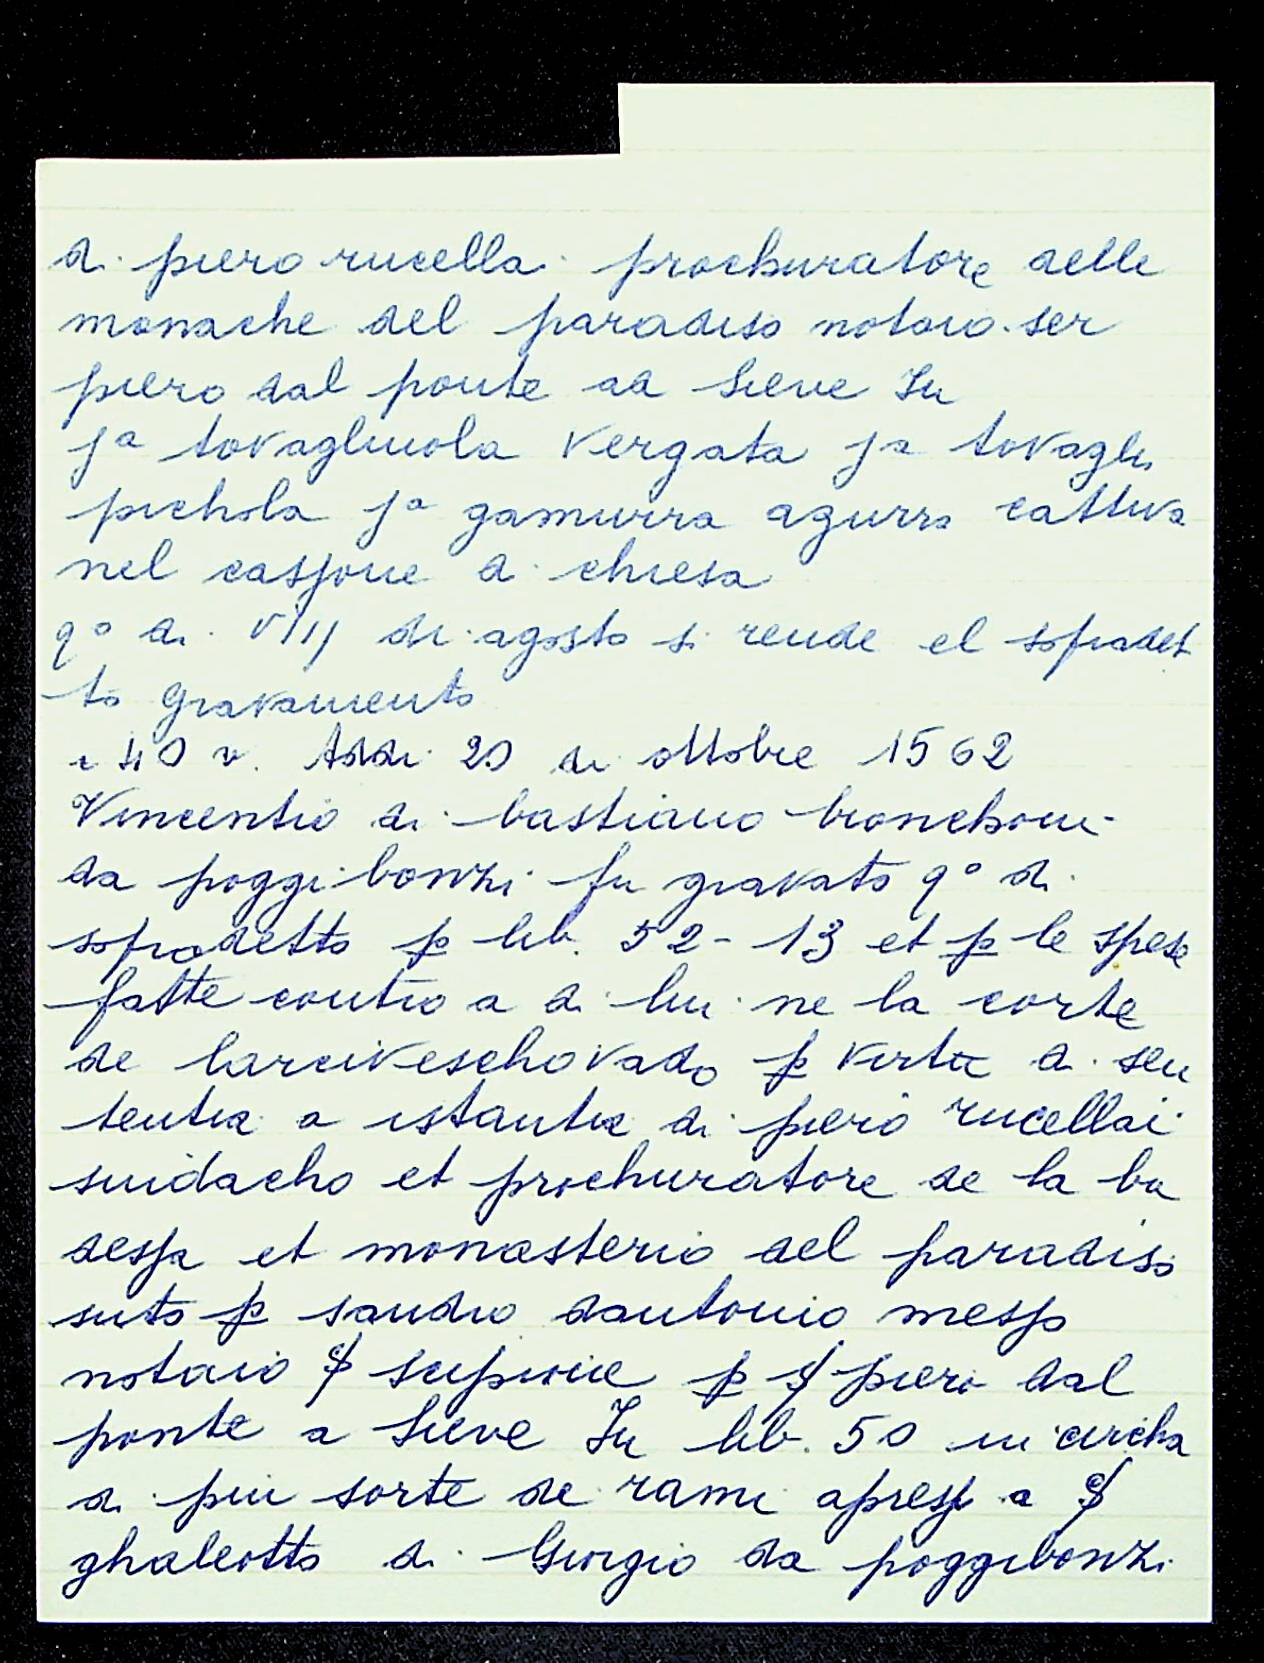 di piero rucella prochuratore delle
monache del paradiso notaio ser
piero dal ponte ad Sieve In
jª tovagliuola vergata jª tovagli
pichola jª gamurra azurra cattiva
nel cassone di chiesa
qº di VIIJ di agosto si rende el sopradet
to gravamento
c 40 v. Addi 20 di ottobre 1562
Vincentio di bastiano bronchoni
da poggibonzi fu gravato qº di
sopradetto p lib. 52-13 et p le spese
fatte contro a di lui ne la corte
de larciveschovado p virtu di sen
tentia a istantia di piero rucellai
sindacho et prochuratore de la ba
dessa et monasterio del paradiso
suto p sandro dantonio messo
notaio S Scipione p S piero dal
ponte a Sieve In lib. 50 in circha
di piu sorte de rami apresso a S
ghaleotto di Giorgio da poggibonzi